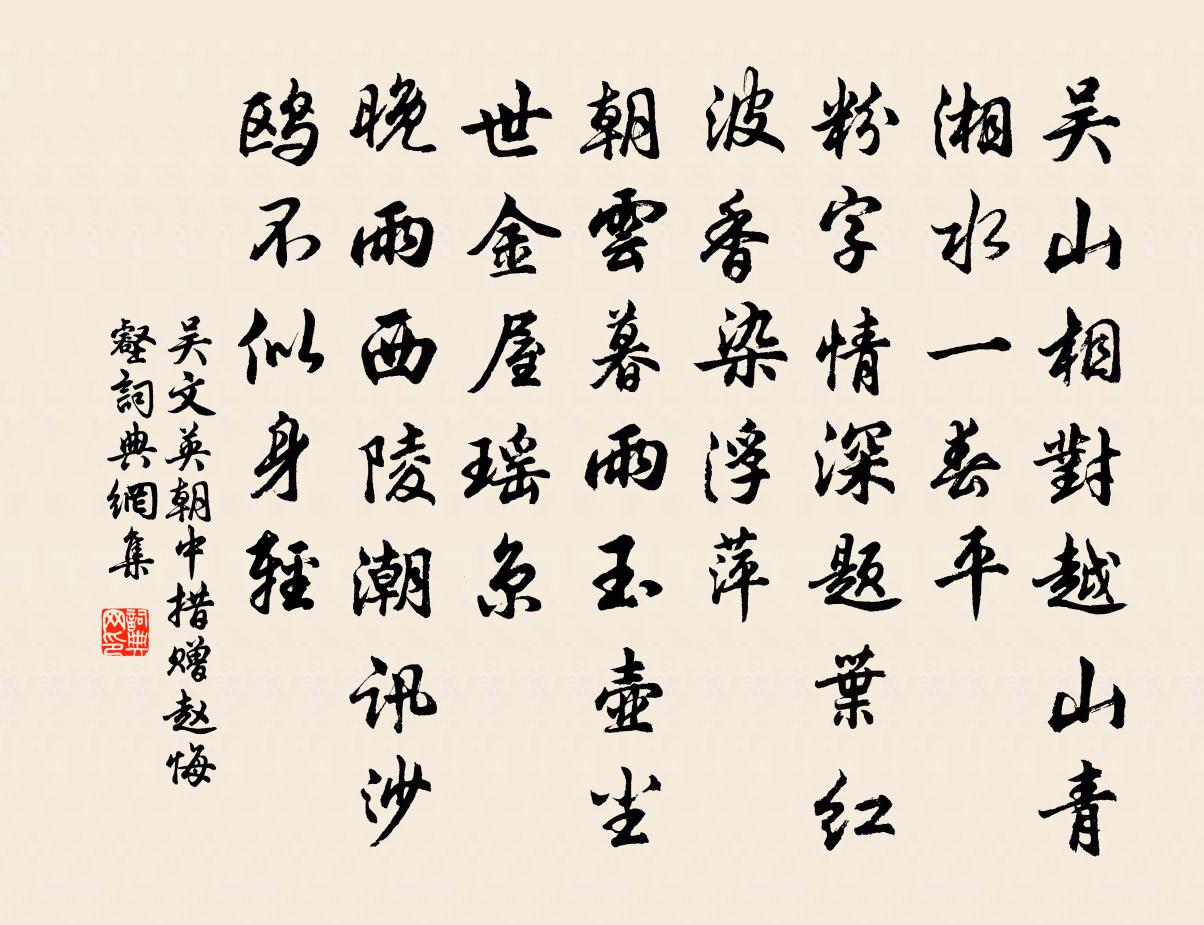 吴山相對越山青
湘水一春平
粉字情深题葉红
波香染浮萍
朝雲暮雨玉壺尘
世金屋瑶京
晚雨西陵潮訊沙
鸥不似身輕
吴文英朝中措赠赵悔
壑詞典網集
詞典
网印